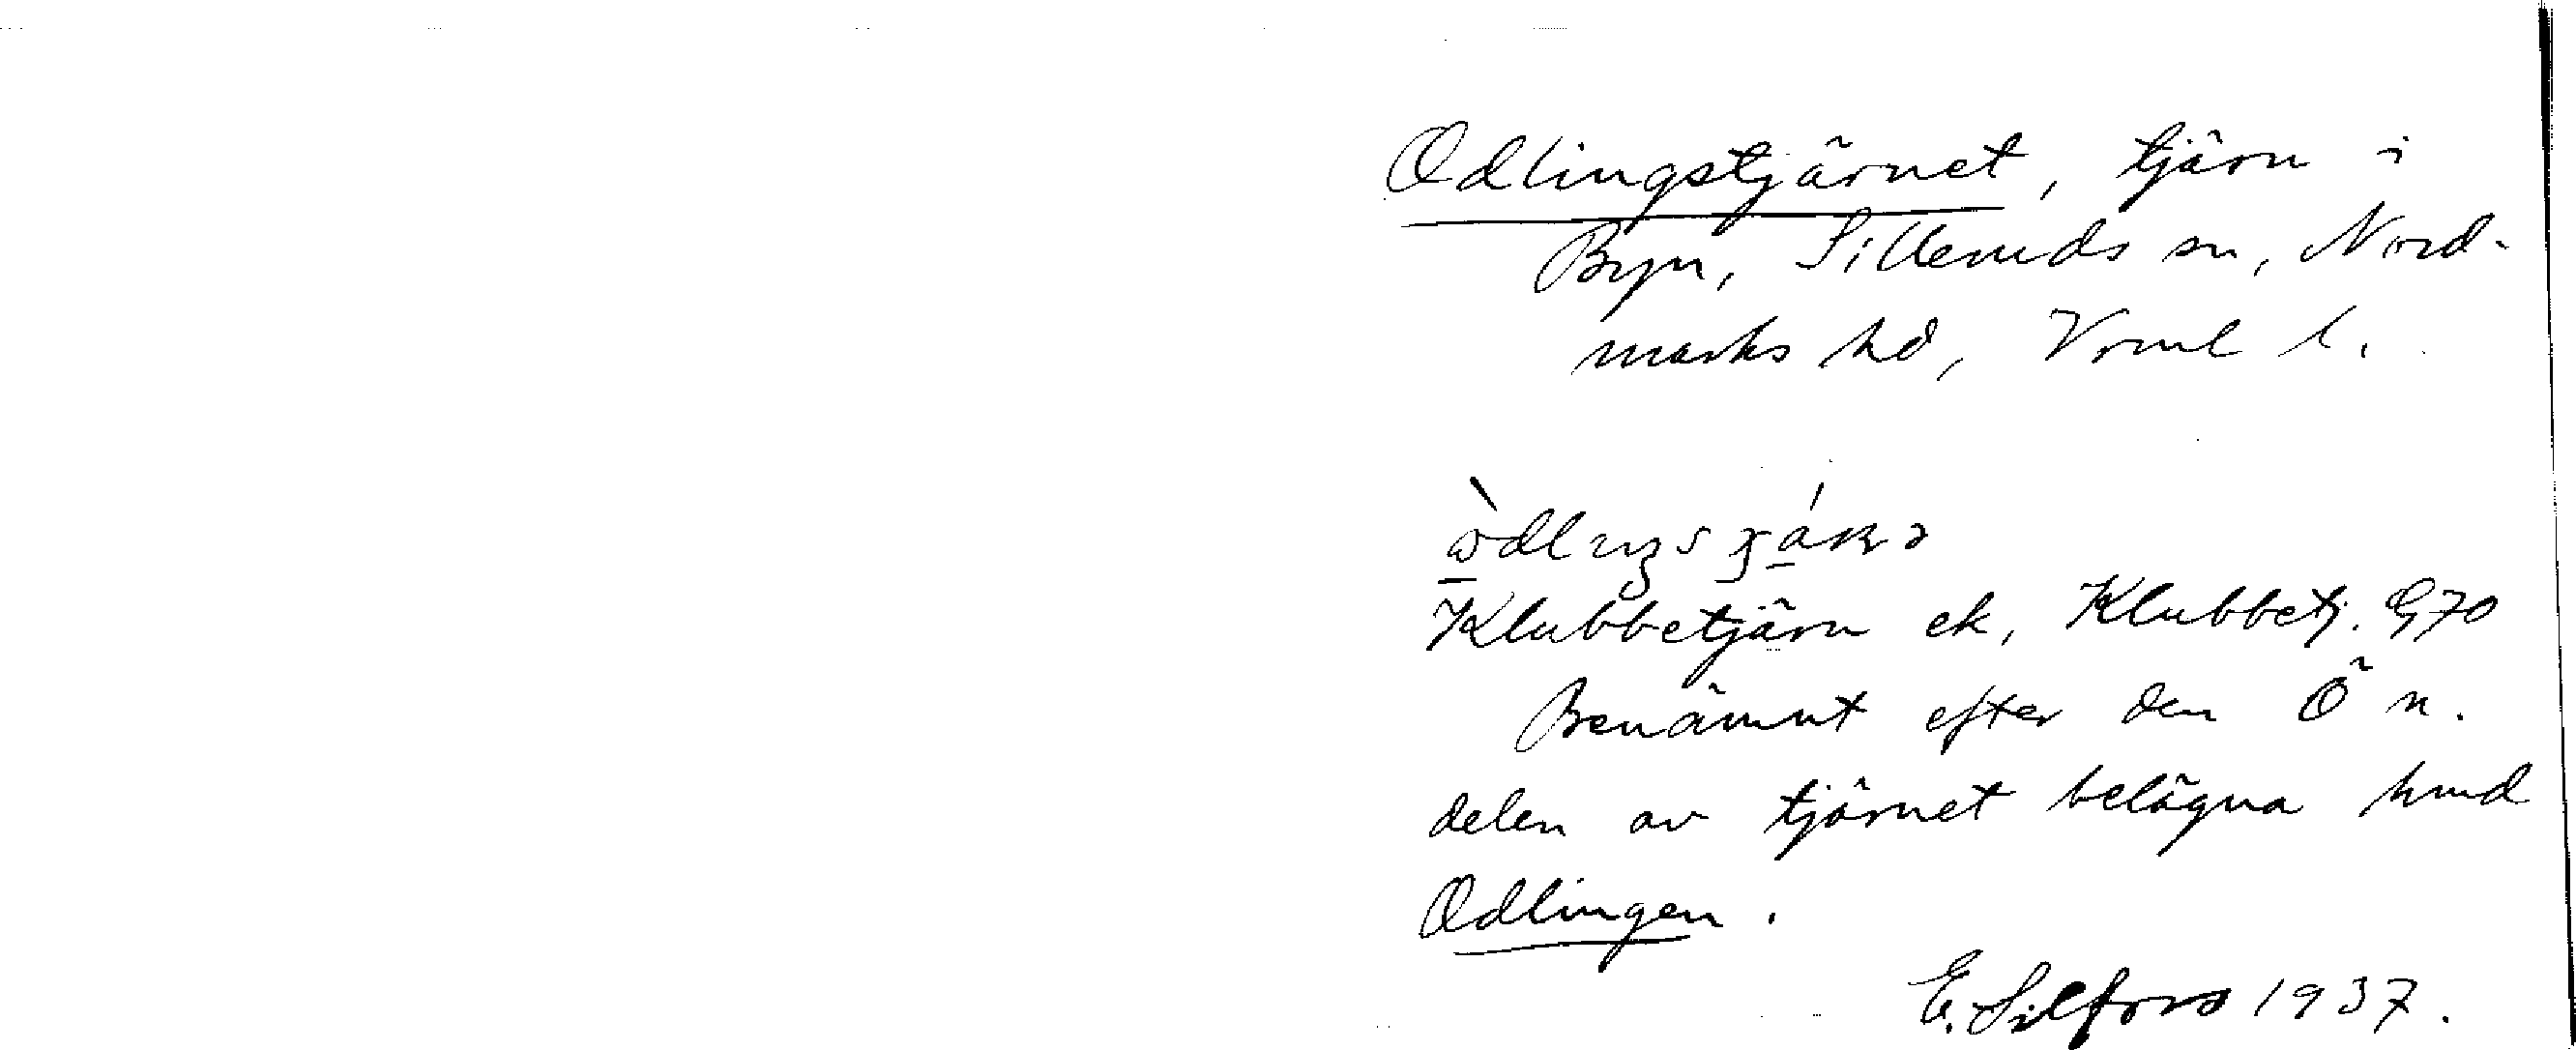 Odlingstjärnet, tjärn i
Byn, Silleruds sn, Nord-
marks hd, Vrml l.
Klubbetjärn ek, Klubbetj. G70
Benämnt efter den Ö n.
delen av tjärnet belägna
Odlingen.
E. Silfors 1937.